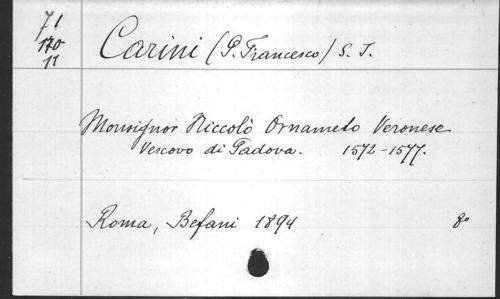 71
170
11
Carini (P. Francesco) S. J.
Monsignor Niccolò Ornaneto Veronese
Vescovo di Padova. 1572-1577.
Roma, Befani 1894 8°